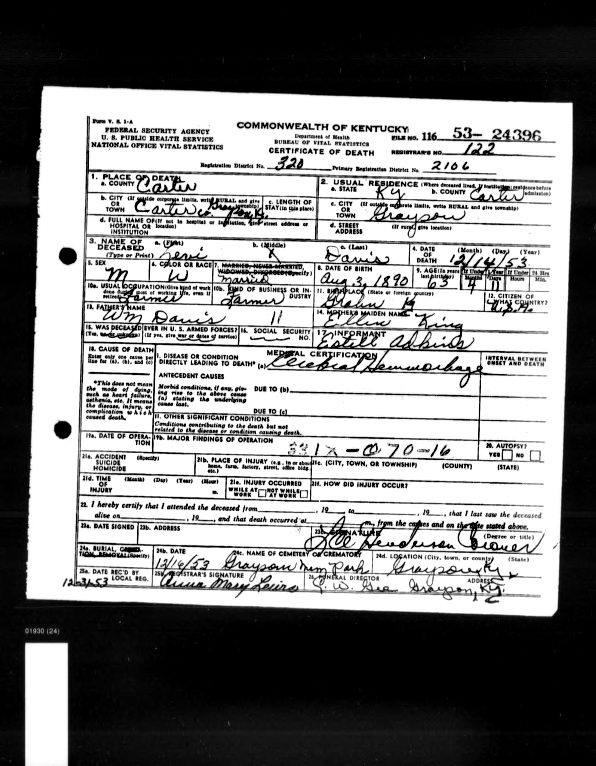 Form V. S. 1-A
FEDERAL SECURITY AGENCY
U. S. PUBLIC HEALTH SERVICE
NATIONAL OFFICE VITAL STATISTICS
COMMONWEALTH OF KENTUCKY
Department of Health
BUREAU OF VITAL STATISTICS
CERTIFICATE OF DEATH
FILE NO. 116 53- 24396
REGISTRAR'S NO. 122
Registration District No. 320 Primary Registration District No. 2106
1. PLACE OF DEATH
a. COUNTY Carter
2. USUAL RESIDENCE (Where deceased lived. If institution: residence before admission)
a. STATE Ky b. COUNTY Carter
b. CITY (If outside corporate limits, write RURAL and give township) OR TOWN Carter
c. LENGTH OF STAY (in this place)
c. CITY (If outside corporate limits, write RURAL and give township) OR TOWN Grayson
d. FULL NAME OF (If not in hospital or institution, give street address or location) HOSPITAL OR INSTITUTION
d. STREET ADDRESS (If rural, give location)
3. NAME OF DECEASED (Type or Print)
a. (First) b. (Middle) X c. (Last) Davis
4. DATE OF DEATH (Month) (Day) (Year) 12/14/53
5. SEX M
6. COLOR OR RACE W
7. MARRIED, NEVER MARRIED, WIDOWED, DIVORCED (Specify) Married
8. DATE OF BIRTH Aug 3, 1890
9. AGE (In years last birthday) 63 If Under 1 Year Months 4 Days 11 If Under 24 Hrs. Hours Min.
10a. USUAL OCCUPATION (Give kind of work done during most of working life, even if retired) Farmer
10b. KIND OF BUSINESS OR INDUSTRY Farmer
11. BIRTHPLACE (State or foreign country) Grahn Ky
12. CITIZEN OF WHAT COUNTRY? U.S.A.
13. FATHER'S NAME Wm Davis
14. MOTHER'S MAIDEN NAME Ellen King
15. WAS DECEASED EVER IN U. S. ARMED FORCES? (Yes, no, or unknown) (If yes, give war or dates of service)
16. SOCIAL SECURITY NO.
17. INFORMANT Estell Adkins
18. CAUSE OF DEATH
Enter only one cause per line for (a), (b), and (c)
MEDICAL CERTIFICATION
INTERVAL BETWEEN ONSET AND DEATH
I. DISEASE OR CONDITION DIRECTLY LEADING TO DEATH* (a) Cerebral Hemmorhage
*This does not mean the mode of dying, such as heart failure, asthenia, etc. It means the disease, injury, or complication which caused death.
ANTECEDENT CAUSES
Morbid conditions, if any, giving rise to the above cause (a) stating the underlying cause last.
DUE TO (b)
DUE TO (c)
II. OTHER SIGNIFICANT CONDITIONS
Conditions contributing to the death but not related to the disease or condition causing death.
19a. DATE OF OPERATION
19b. MAJOR FINDINGS OF OPERATION
331X - 070 - 16
20. AUTOPSY? YES NO
21a. ACCIDENT SUICIDE HOMICIDE (Specify)
21b. PLACE OF INJURY (e.g., in or about home, farm, factory, street, office bldg. etc.)
21c. (CITY, TOWN, OR TOWNSHIP) (COUNTY) (STATE)
21d. TIME OF INJURY (Month) (Day) (Year) (Hour) m.
21e. INJURY OCCURRED WHILE AT WORK NOT WHILE AT WORK
21f. HOW DID INJURY OCCUR?
22. I hereby certify that I attended the deceased from , 19 to , 19 , that I last saw the deceased
alive on , 19 , and that death occurred at m., from the causes and on the date stated above.
23a. DATE SIGNED
23b. ADDRESS
23c. SIGNATURE (Degree or title)
Henderson Coroner
24a. BURIAL, CREMATION, REMOVAL (Specify)
24b. DATE 12/16/53
24c. NAME OF CEMETERY OR CREMATORY Grayson Mem Park
24d. LOCATION (City, town, or county) (State) Grayson Ky
25a. DATE REC'D BY LOCAL REG.
25b. REGISTRAR'S SIGNATURE Anna Mary Lewis
26. FUNERAL DIRECTOR ADDRESS Grayson, Ky.
01930 (24)